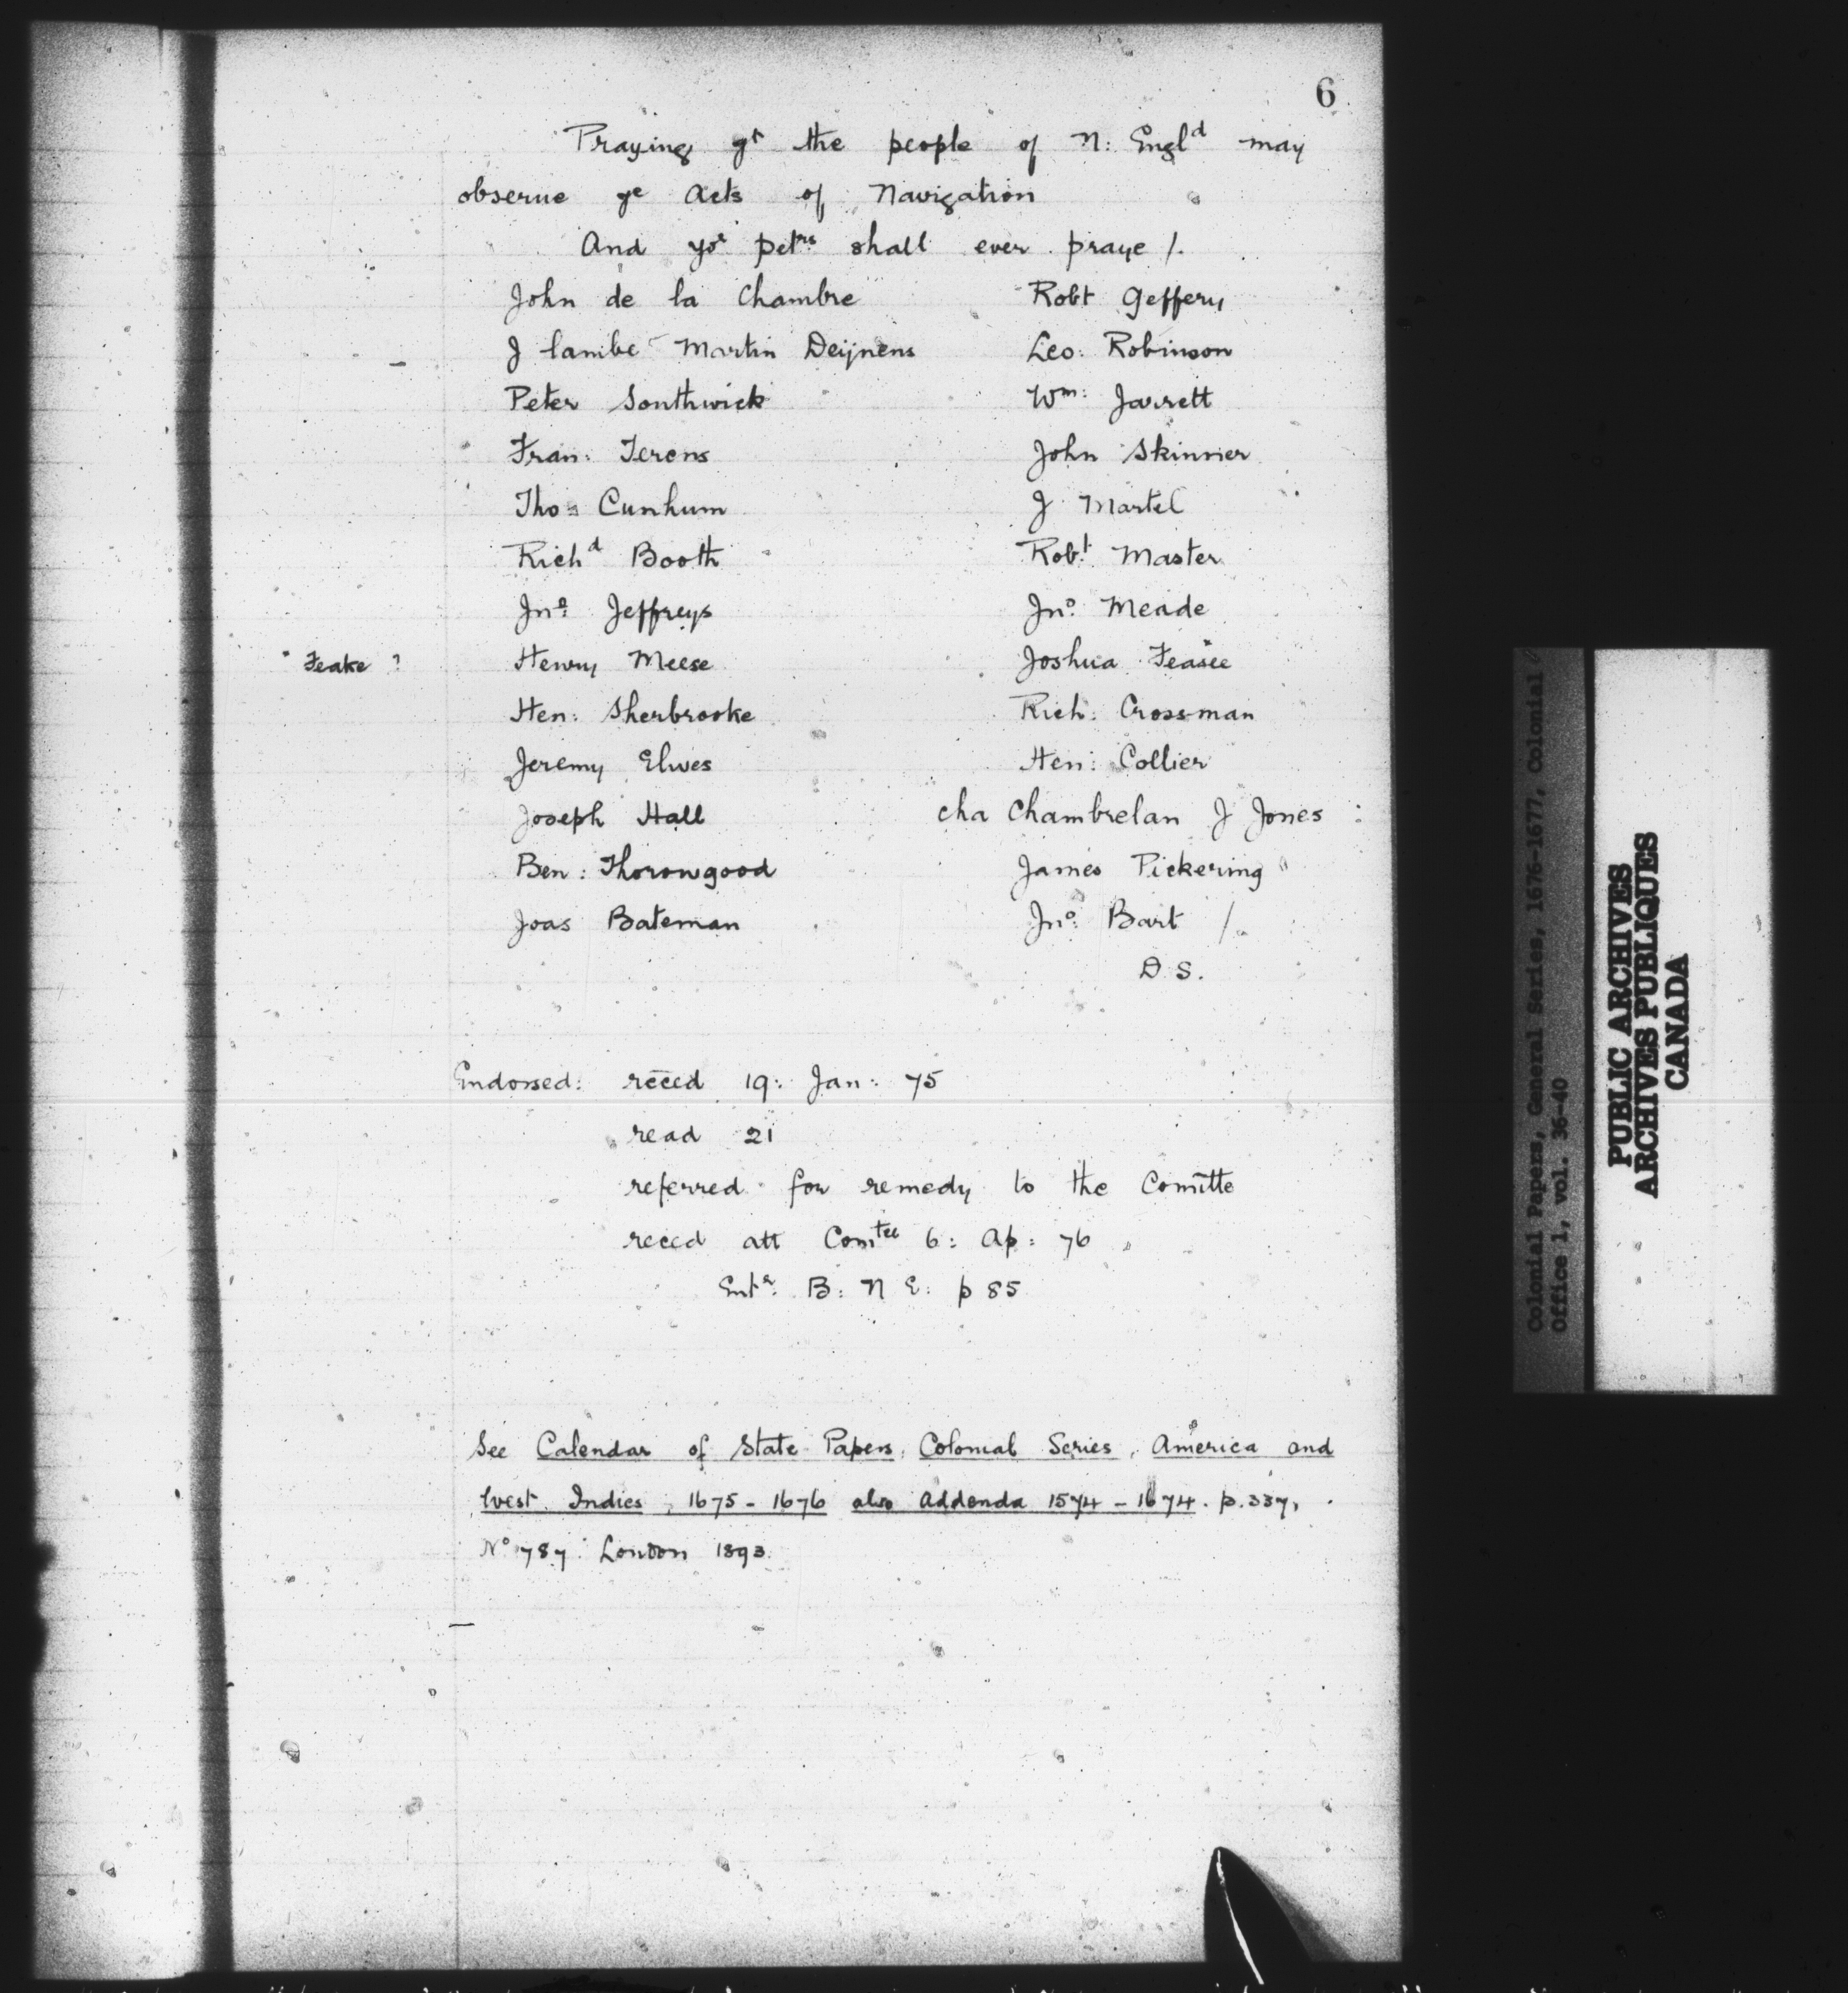 6
Praying yt the people of N: Engld may
observe ye Acts of Navigation
And yor petrs shall ever praye /.
John de la Chambre Robt Geffery
J lambe Martin Deijnens Leo: Robinson
Peter Southwick Wm: Jarrett
Fran: Terens John Skinner
Tho: Cunhum J Martel
Richd Booth Robt Master
Jno: Jeffreys Jno: Meade
* Feake ? Henry Meese Joshua Feasee*
Hen: Sherbrooke Rich: Crossman
Jeremy Elwes Hen: Collier
Joseph Hall cha Chambrelan J Jones
Ben: Thorowgood James Pickering
Joas Bateman Jno: Bart /
D. S.
Endorsed: recēd 19: Jan: 75
read 21
referred for remedy to the Comītte
reced att Comtee 6: Ap: 76
Entr: B: N E: p 85
See Calendar of State Papers, Colonial Series, America and
West Indies, 1675 - 1676 also Addenda 1574 - 1674. p. 337,
No 787. London 1893.
Colonial Papers, General Series, 1676-1677, Colonial
Office 1, vol. 36-40
PUBLIC ARCHIVES
ARCHIVES PUBLIQUES
CANADA